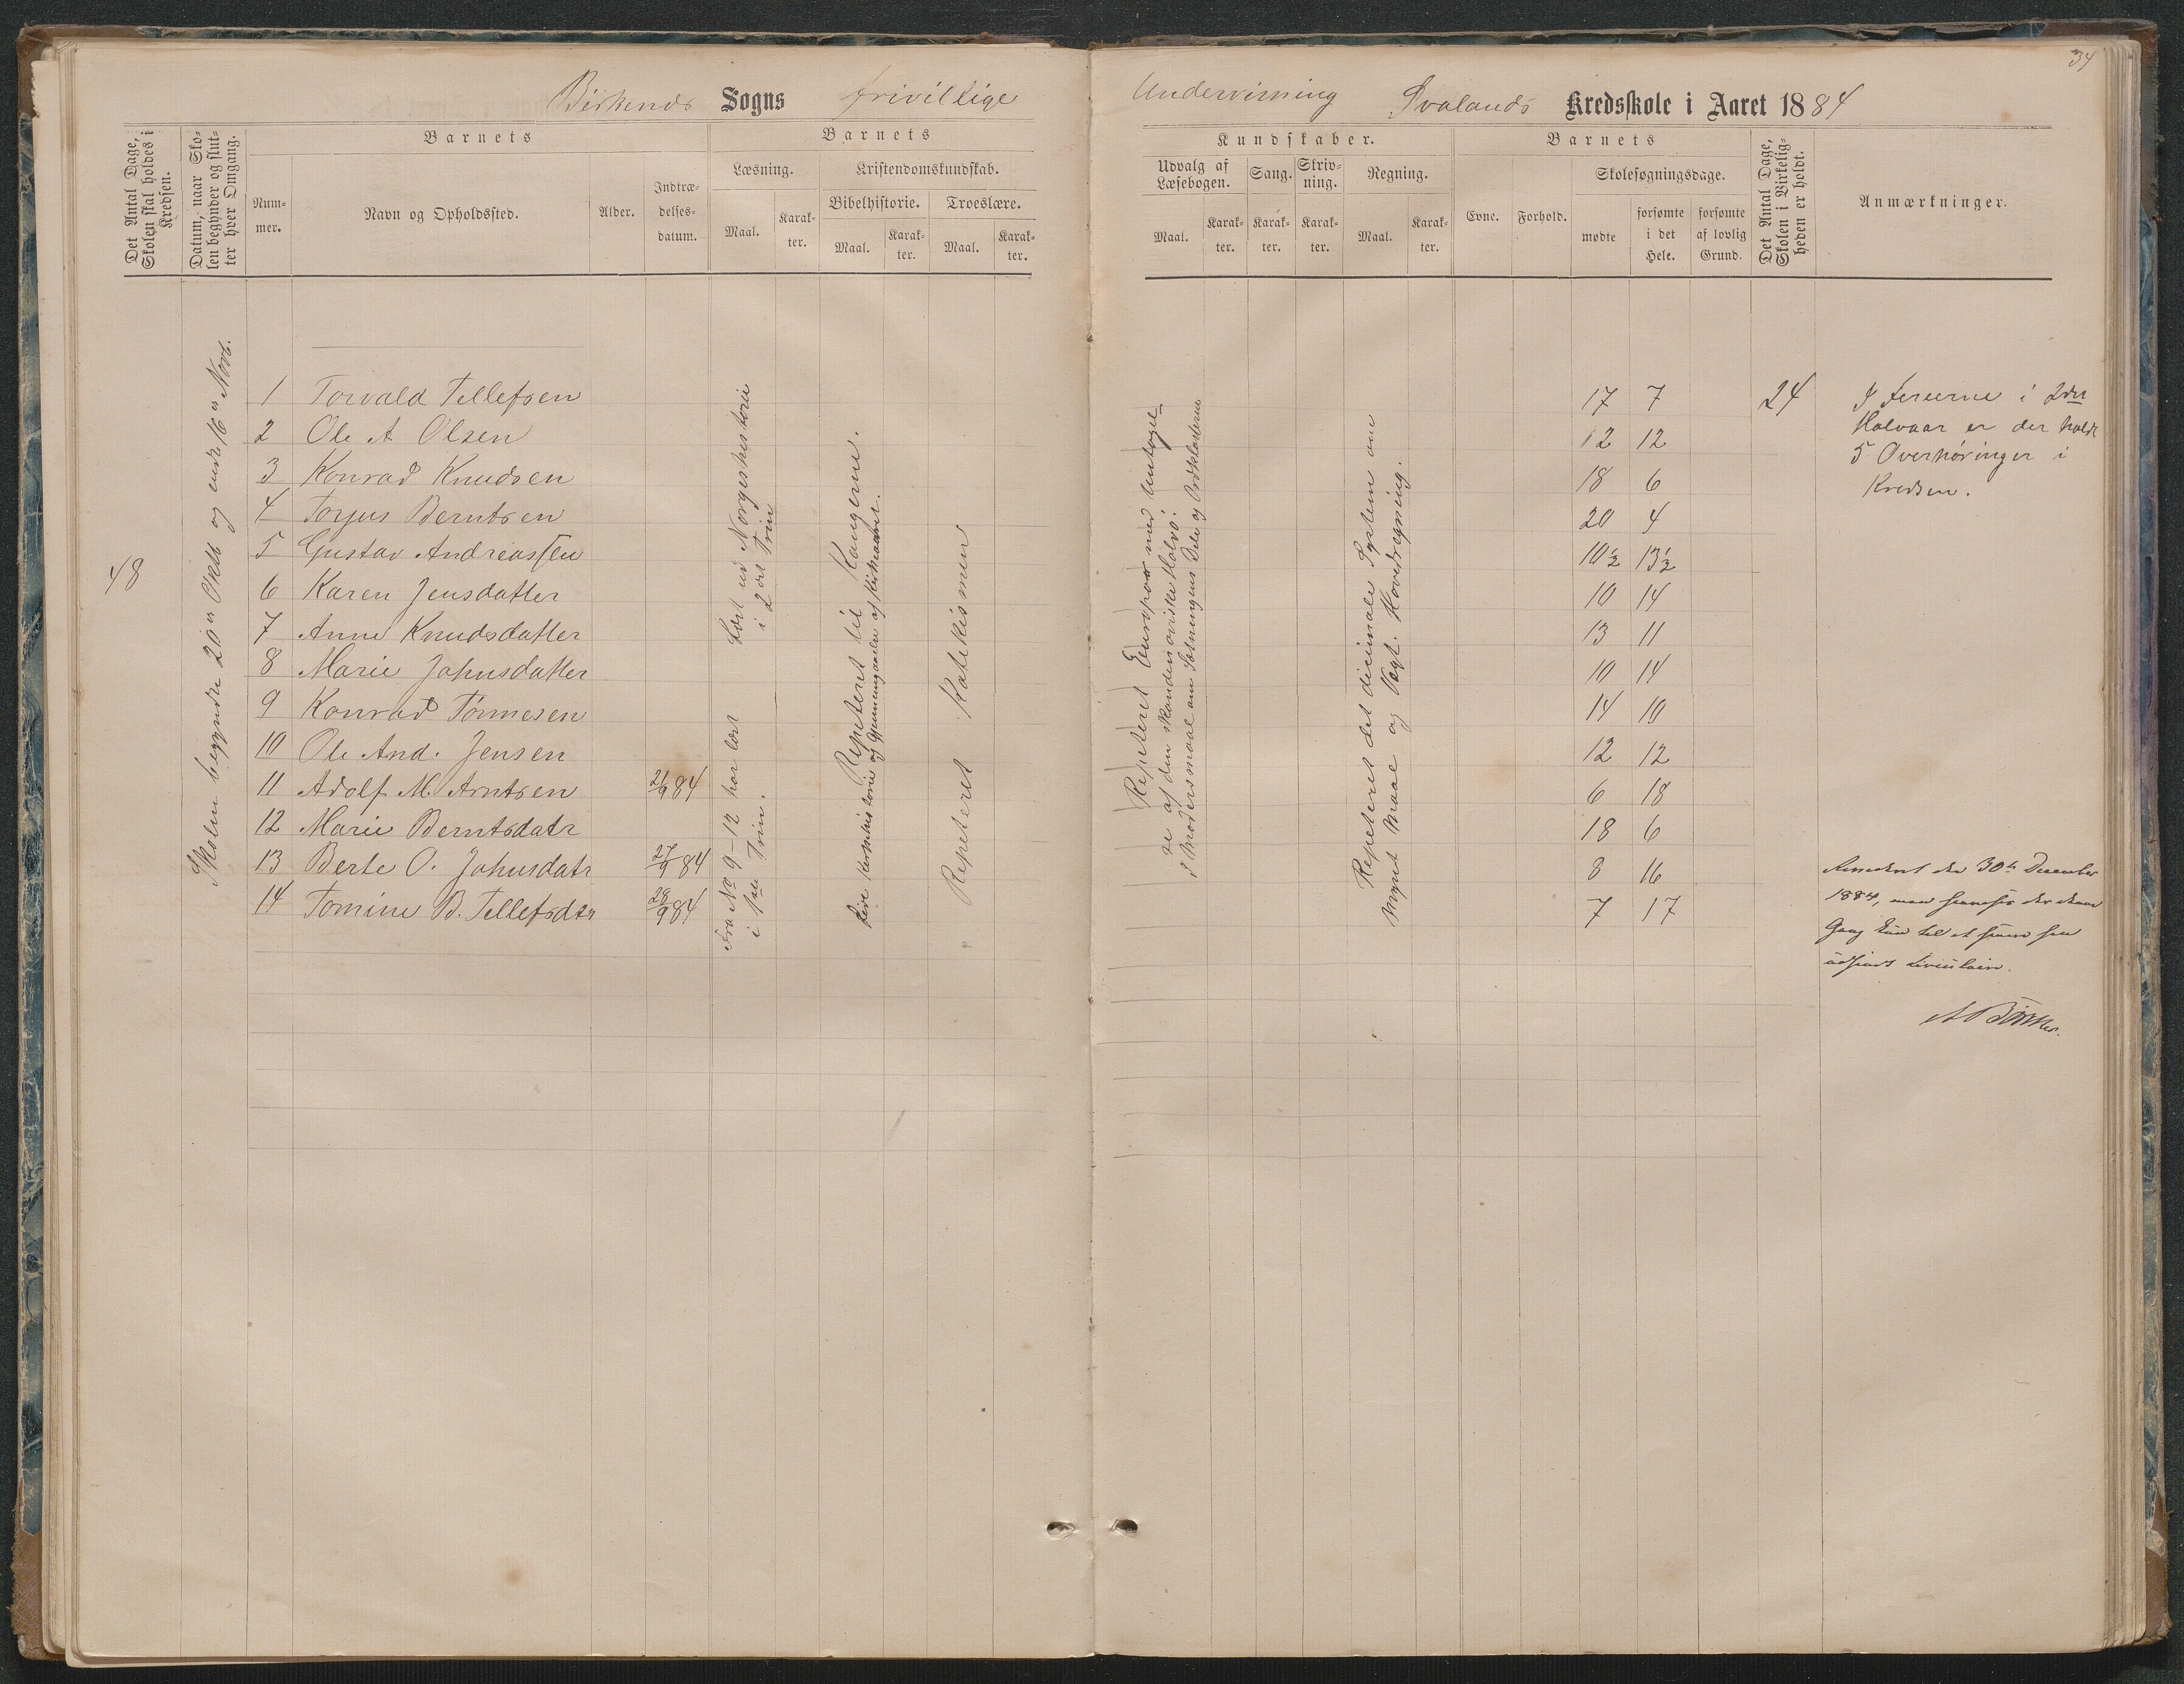 34
Birkenes Sogns frivillige Undervisning Svalands Kredsskole i Aaret 1884
Det Antal Dage, Skolen skal holdes i Kredsen.
Datum, naar Skolen begynder og slutter hver Omgang.
Barnets
Nummer.
Navn og Opholdssted.
Alder.
Indtrædelsesdatum.
Barnets
Læsning.
Maal.
Karakter.
Kristendomskundskab.
Bibelhistorie.
Maal.
Karakter.
Troeslære.
Maal.
Karakter.
Kundskaber.
Udvalg af Læsebogen.
Maal.
Karakter.
Sang.
Karakter.
Skrivning.
Karakter.
Regning.
Maal.
Karakter.
Barnets
Evne.
Forhold.
Skolesøgningsdage.
mødte
forsømte i det Hele.
forsømte af lovlig Grund.
Det Antal Dage, Skolen i Virkeligheden er holdt.
Anmærkninger.
48
Skolen begyndte 20de Oktb og endte 16de Novb.
1 Torvald Tellefsen 17 7
2 Ole A Olsen 12 12
3 Konrad Knudsen 18 6
4 Torjus Berntsen 20 4
5 Gustav Andreassen 10½ 13½
6 Karen Jensdatter 10 14
7 Anne Knudsdatter 13 11
8 Marie Johnsdatter 10 14
9 Konrad Tønnesen 14 10
10 Ole And. Jensen 12 12
11 Adolf M. Arntsen 21/9 84 6 18
12 Marie Berntsdatr 18 6
13 Berte O. Johnsdatr 27/9 84 8 16
14 Tomine B. Tellefsdtr 28/9 84 7 17
Læst ud Norgeshistorie
i 2det Trin
Fra No 9-12 har læst
i 1ste Trin.
Repeteret til Kongerne.
Kirkehistorie og Gjennemgaaelse af Kirkeaaret.
Repeteret Katekismen
Repeteret Europa med Undtagelse
af den skandinaviske Halvø.
I Modersmaal om Sætningens Dele og Ordklasserne
Repeteret det decimale System om
Mynt Maal og Vægt. Hovedregning.
24
I Ferierne i 2det
Halvaar er der holdt
5 Overhøringer i
Kredsen.
Revideret den 30te December
1884,